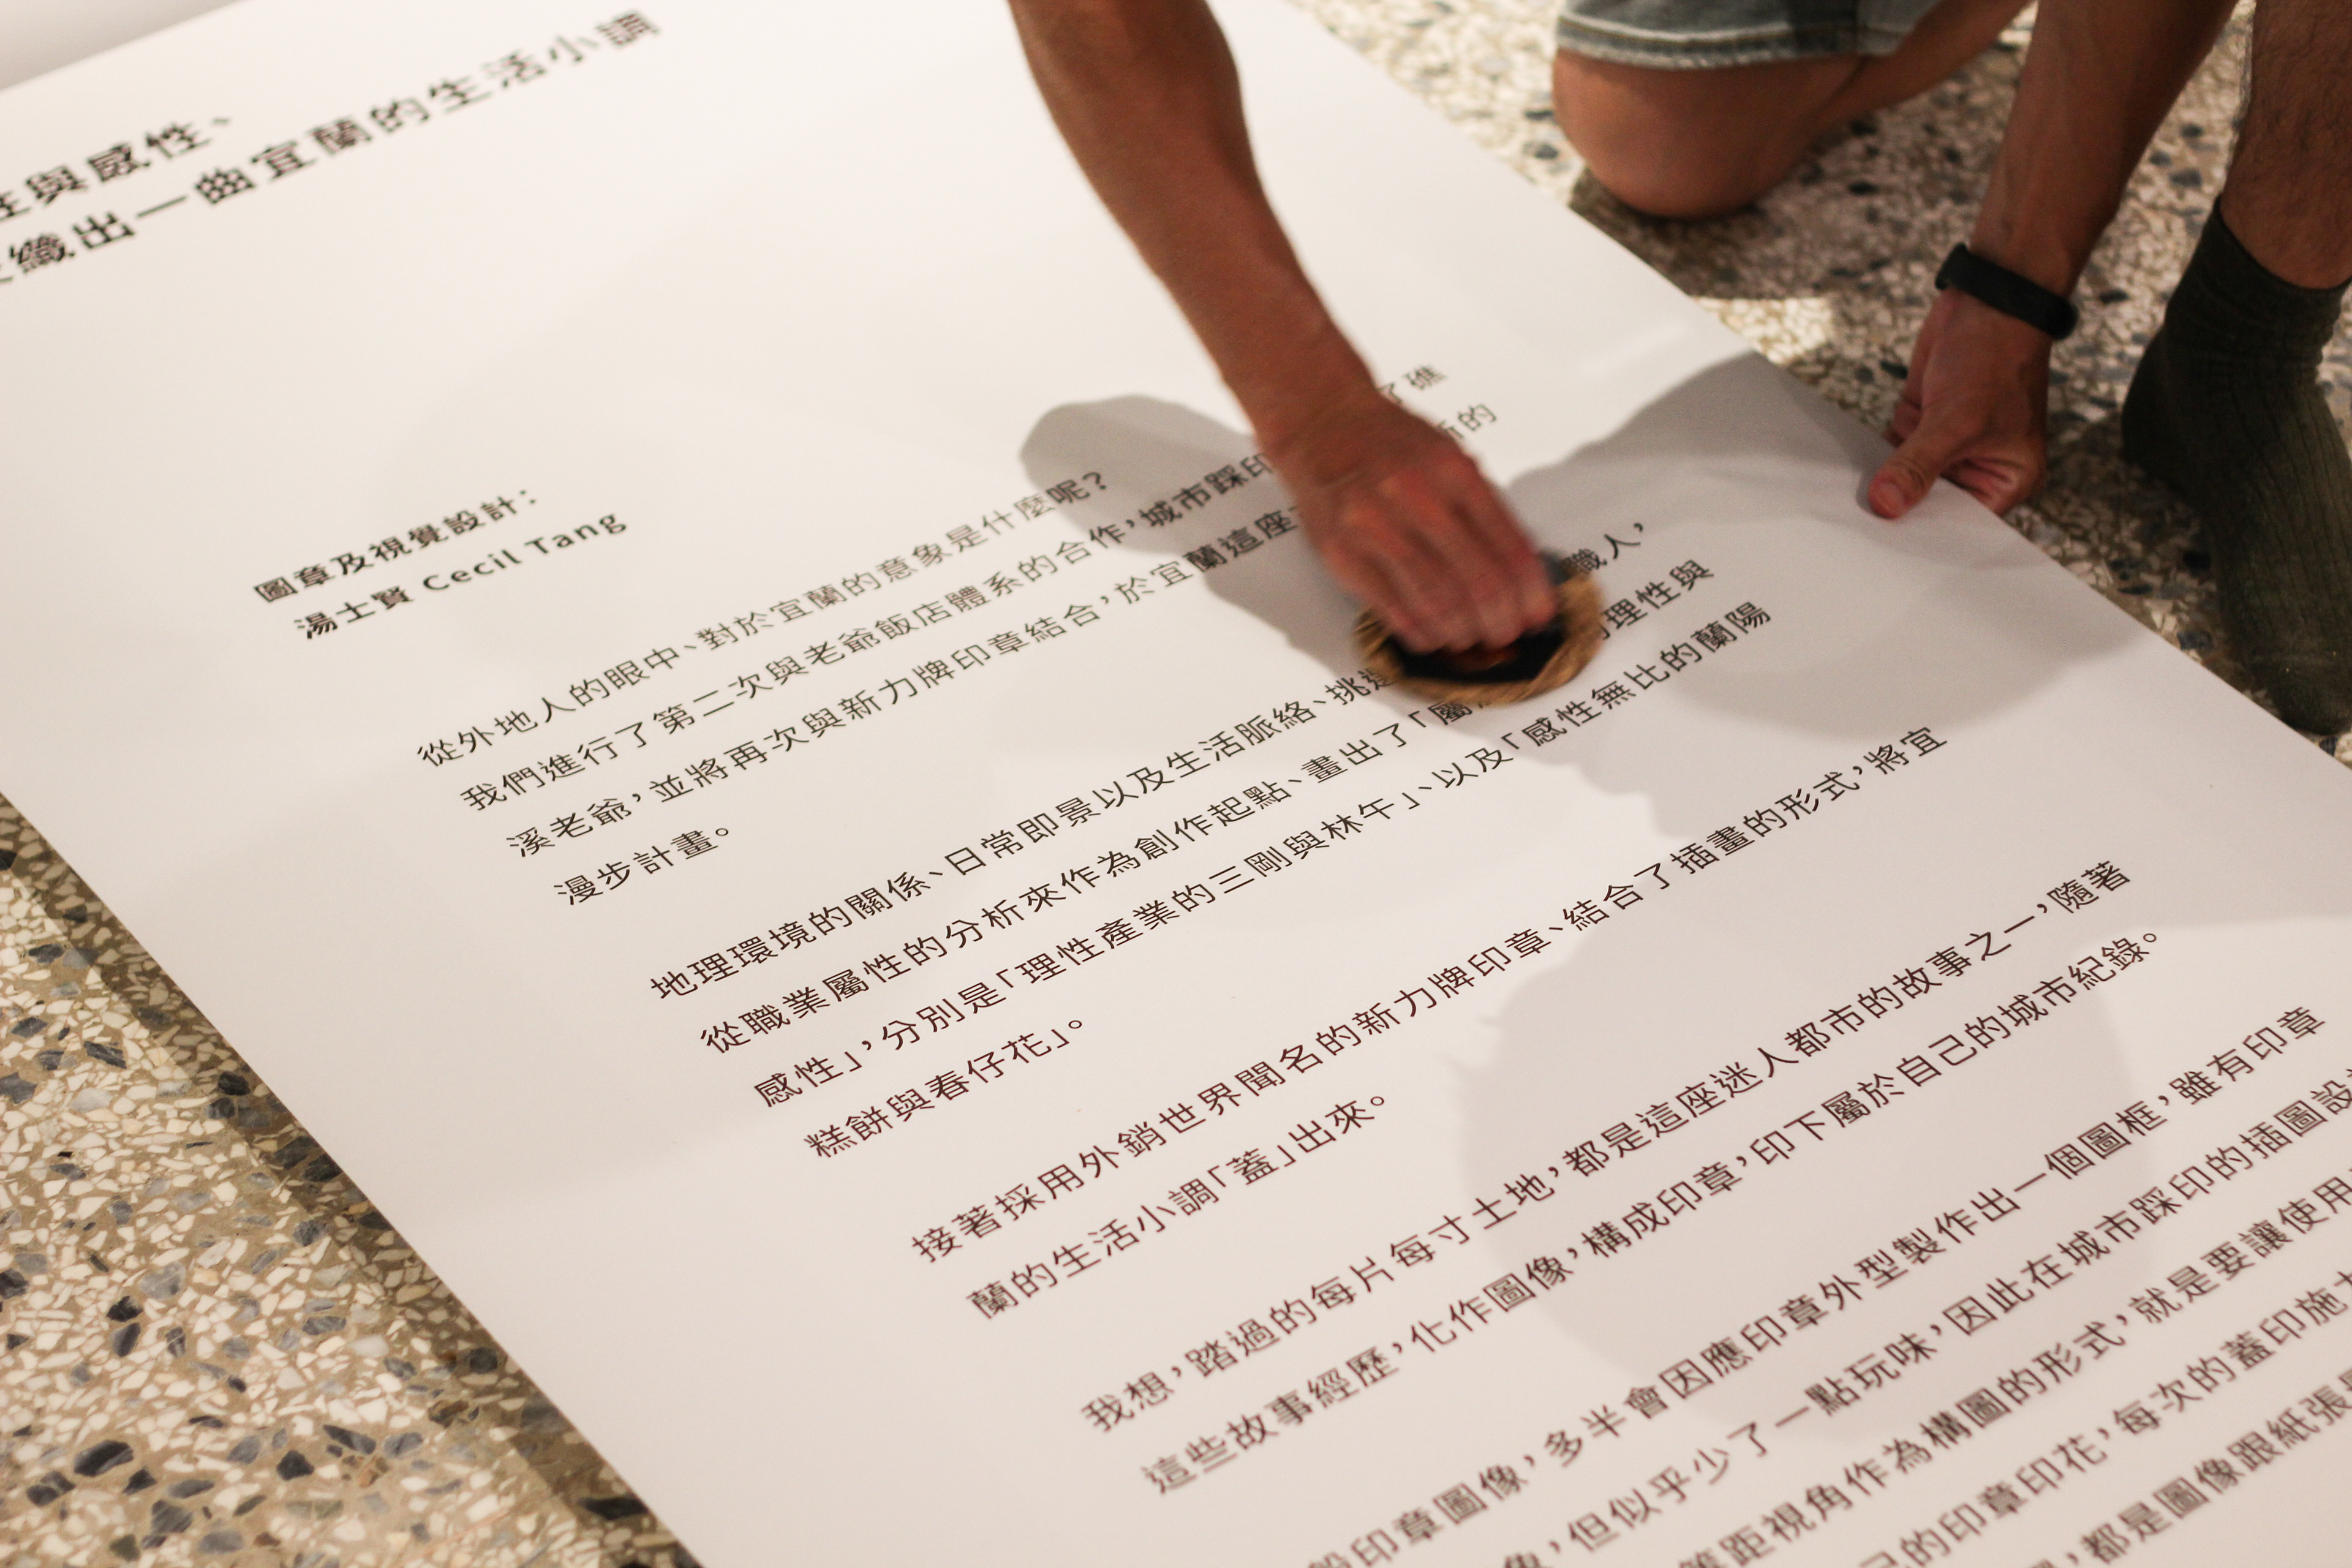 性與感性、
織出一曲宜蘭的生活小調
圖章及視覺設計：
湯士賢 Cecil Tang
從外地人的眼中、對於宜蘭的意象是什麼呢？
我們進行了第二次與老爺飯店體系的合作，城市踩印 了礁
溪老爺，並將再次與新力牌印章結合，於宜蘭這座 新的
漫步計畫。
地理環境的關係、日常即景以及生活脈絡、挑選 職人，
從職業屬性的分析來作為創作起點、畫出了「屬 理性與
感性」，分別是「理性產業的三剛與林午」、以及「感性無比的蘭陽
糕餅與春仔花」。
接著採用外銷世界聞名的新力牌印章、結合了插畫的形式，將宜
蘭的生活小調「蓋」出來。
我想，踏過的每片每寸土地，都是這座迷人都市的故事之一，隨著
這些故事經歷，化作圖像，構成印章，印下屬於自己的城市紀錄。
般印章圖像，多半會因應印章外型製作出一個圖框，雖有印章
象，但似乎少了一點玩味，因此在城市踩印的插圖設
等距視角作為構圖的形式，就是要讓使用
己的印章印花，每次的蓋印施力
，都是圖像跟紙張